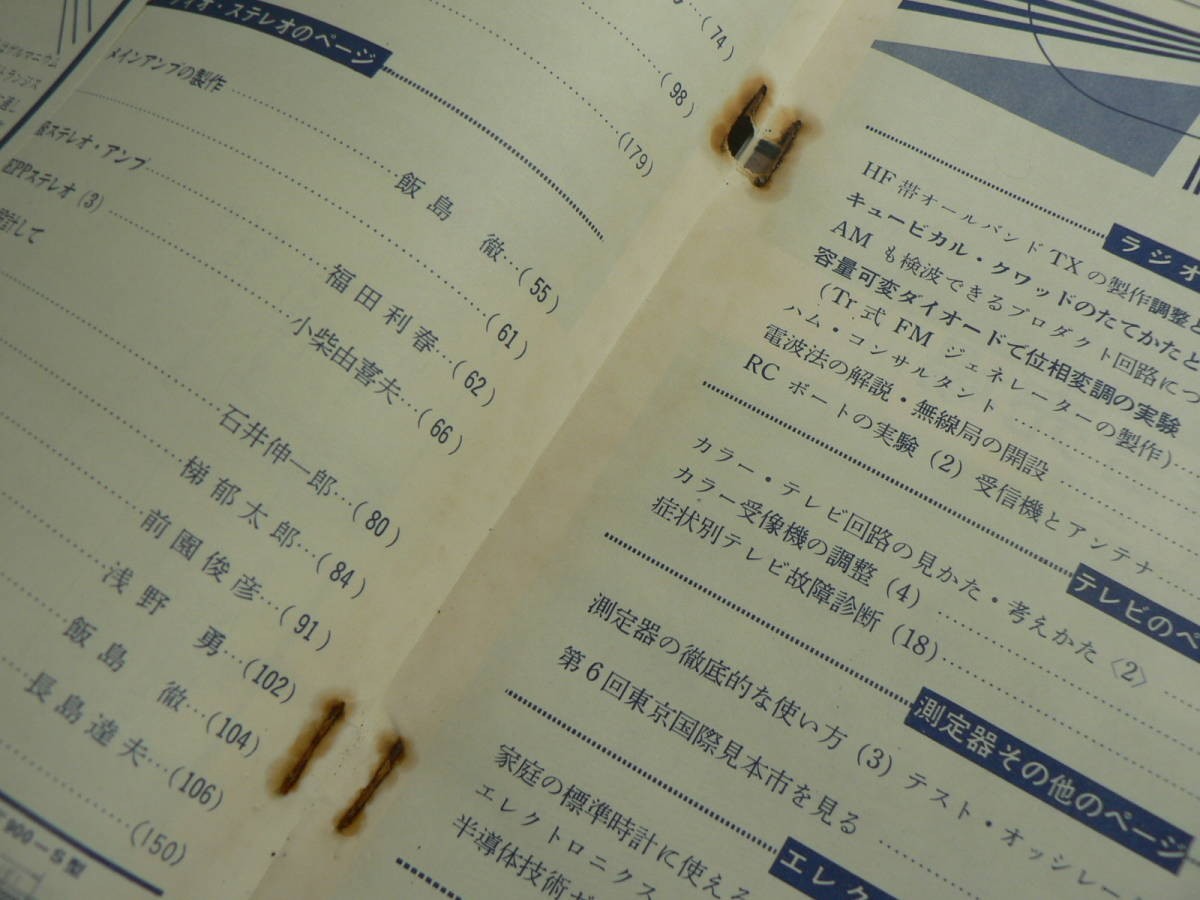 ィオ・ステレオのページ
(74)
(98)
(179)
メインアンプの製作
飯島 徹…(55)
(61)
ステレオ・アンプ
福田利春…(62)
PPステレオ (3)
小柴由喜夫…(66)
計して
石井伸一郎…(80)
梯郁太郎…(84)
前園俊彦…(91)
浅野 勇…(102)
飯島 徹…(104)
長島達夫…(106)
(150)
900-S型
ラジオ
HF帯オールバンドTXの製作調整と
キュービカル・クワッドのたてかたと
AM も検波できるプロダクト回路につ
容量可変ダイオードで位相変調の実験
(Tr式 FM ジェネレーターの製作)
ハム・コンサルタント
電波法の解説・無線局の開設
RC ボートの実験 (2) 受信機とアンテナ
テレビのペ
カラー・テレビ回路の見かた・考えかた〈2〉
カラー受像機の調整 (4)
症状別テレビ故障診断 (18)
測定器その他のページ
測定器の徹底的な使い方 (3) テスト・オッシレー
第6回東京国際見本市を見る
エレク
家庭の標準時計に使える
エレクトロニクス
半導体技術